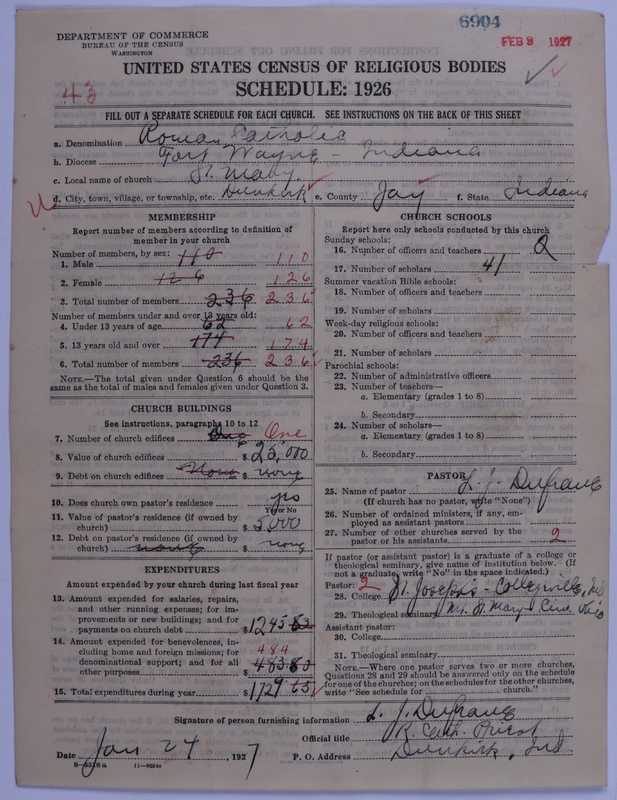 6904
FEB 9 1927
DEPARTMENT OF COMMERCE
BUREAU OF THE CENSUS
WASHINGTON
UNITED STATES CENSUS OF RELIGIOUS BODIES
SCHEDULE: 1926
43
FILL OUT A SEPARATE SCHEDULE FOR EACH CHURCH. SEE INSTRUCTIONS ON THE BACK OF THIS SHEET
a. Denomination Roman Catholic
b. Diocese Fort Wayne - Indiana
c. Local name of church St. Mary.
d. City, town, village, or township, etc. Dunkirk e. County Jay f. State Indiana
MEMBERSHIP
Report number of members according to definition of member in your church
Number of members, by sex:
1. Male 110 110
2. Female 126 126
3. Total number of members 236 236
Number of members under and over 13 years old:
4. Under 13 years of age 62 62
5. 13 years old and over 174 174
6. Total number of members 236 236
NOTE.—The total given under Question 6 should be the same as the total of males and females given under Question 3.
CHURCH BUILDINGS
See instructions, paragraphs 10 to 12
7. Number of church edifices One One
8. Value of church edifices $ 25,000
9. Debt on church edifices None $ none
10. Does church own pastor's residence yes
Yes or No
11. Value of pastor's residence (if owned by church) $ 5000
12. Debt on pastor's residence (if owned by church) none $ none
EXPENDITURES
Amount expended by your church during last fiscal year
13. Amount expended for salaries, repairs, and other running expenses; for improvements or new buildings; and for payments on church debt $ 1245
14. Amount expended for benevolences, including home and foreign missions; for denominational support; and for all other purposes 484 $ 483
15. Total expenditures during year $ 1729
CHURCH SCHOOLS
Report here only schools conducted by this church
Sunday schools:
16. Number of officers and teachers 2
17. Number of scholars 41
Summer vacation Bible schools:
18. Number of officers and teachers
19. Number of scholars
Week-day religious schools:
20. Number of officers and teachers
21. Number of scholars
Parochial schools:
22. Number of administrative officers
23. Number of teachers—
a. Elementary (grades 1 to 8)
b. Secondary
24. Number of scholars—
a. Elementary (grades 1 to 8)
b. Secondary
PASTOR
25. Name of pastor L. J. Dufrane
(If church has no pastor, write "None")
26. Number of ordained ministers, if any, employed as assistant pastors
27. Number of other churches served by the pastor or his assistants 2
If pastor (or assistant pastor) is a graduate of a college or theological seminary, give name of institution below. (If not a graduate, write "No" in the space indicated.)
Pastor: 2
28. College St. Joseph's - Collegeville, Ind
29. Theological seminary Mt. St. Mary Cin. Ohio
Assistant pastor:
30. College
31. Theological seminary
NOTE.—Where one pastor serves two or more churches, Questions 28 and 29 should be answered only on the schedule for one of the churches; on the schedules for the other churches, write "See schedule for church."
Signature of person furnishing information L. J. Dufrane
Official title R. Cath. Priest
Date Jan 24, 1927 P. O. Address Dunkirk, Ind
8—5518a 11—9654